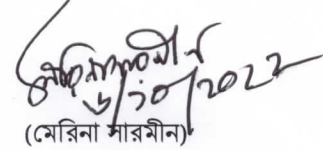 ৬/১০/২০২২
(মেরিনা সারমীন)